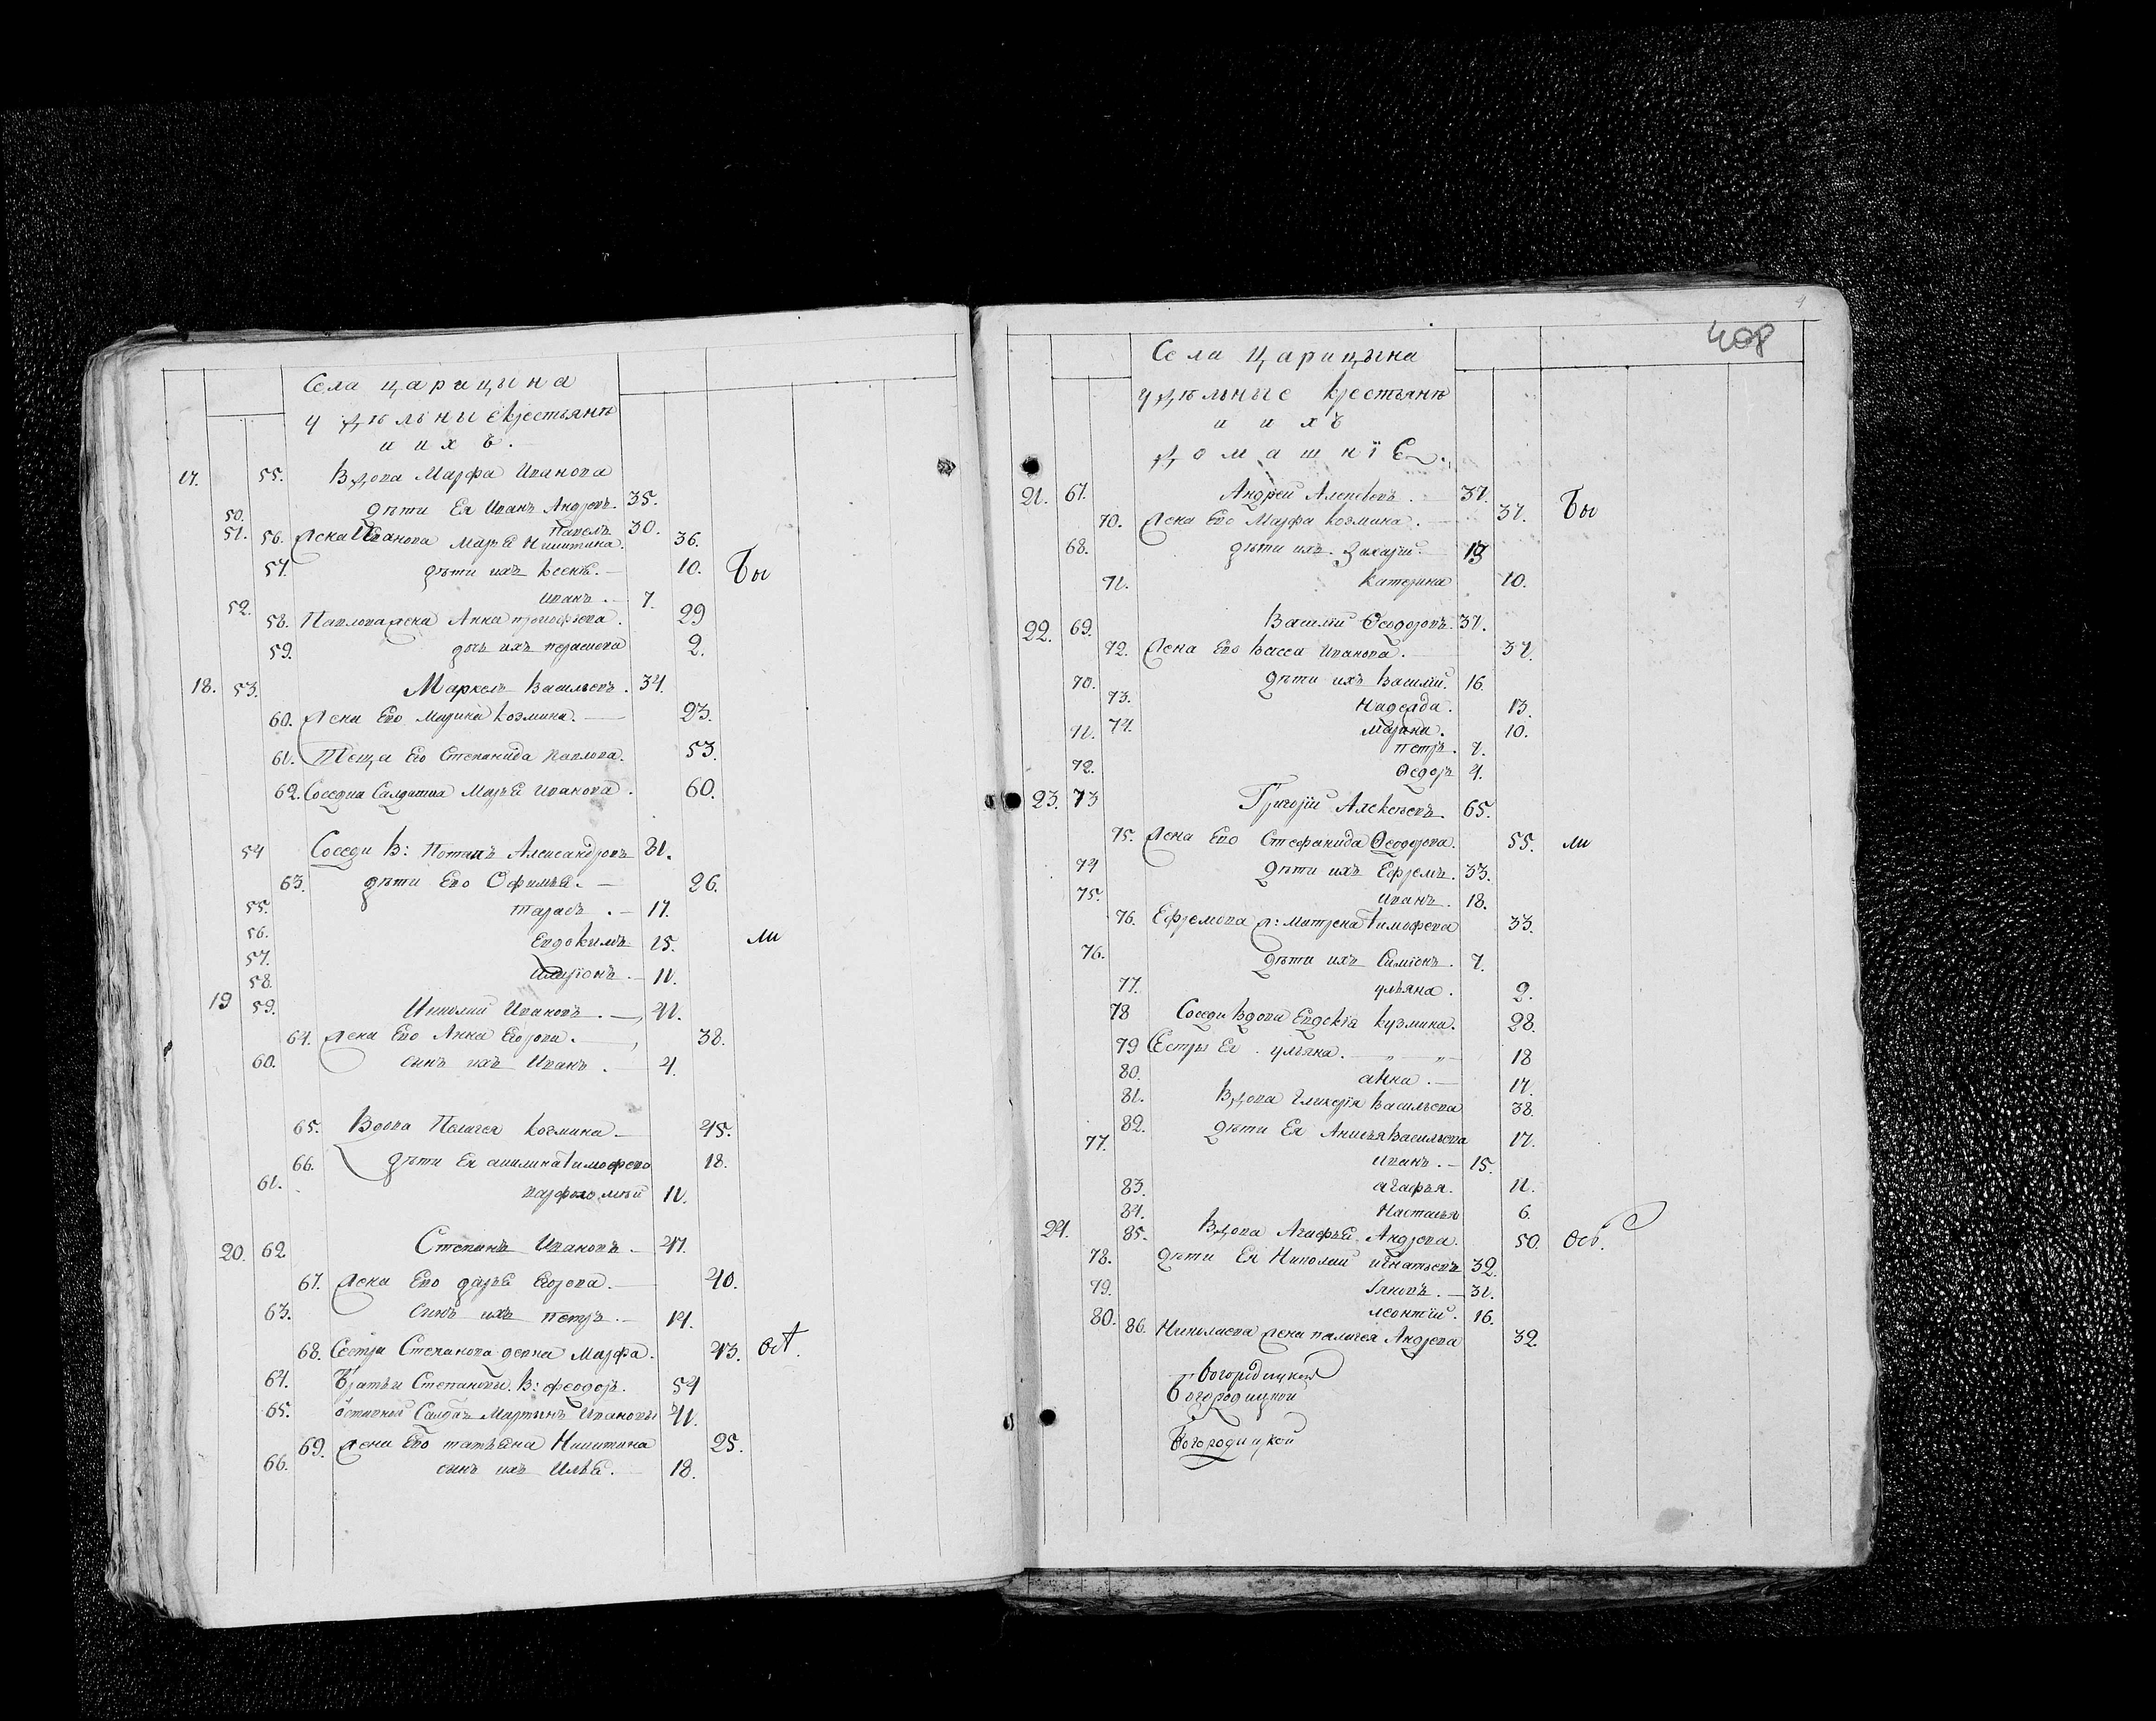 Села царицына
удѣльные крестьянѣ
и ихъ.
17. 55. Вдова Марфа Иванова
50. дѣти Ея Иванъ Андреевъ. 35.
51. Павелъ 30.
56. Жена Иванова Марья Никитина. 36.
57. дѣти ихъ Ксенья. 10. Бы
52. Иванъ. 7.
58. Павлова жена Анна прокофьева. 29
59. дочь ихъ параскева 2.
18. 53. Маркелъ Васильевъ. 34.
60. Жена Ево Марина Козмина. 23.
61. Теща Ево Степанида Павлова. 53.
62. Соседка Салдатка Марья Иванова. 60.
54 Соседи В: Потапъ Александровъ 81.
63. дѣти Ево Офимья. 26.
55. тарасъ. 17.
56. Евдокимъ 15. ли
57.
58. Иларіонъ. 11.
19 59. Николай Ивановъ. 41.
64. Жена Ево Анна Егорова. 38.
60. сынъ ихъ Иванъ. 4.
65. Вдова Пелагея Козмина 45.
66. дѣти Ея акилина тимофева 18.
61. варфоломѣй 11.
20. 62. Степанъ Ивановъ. 47.
67. Жена Ево дарья Егорова. 40.
63. сынъ ихъ петръ. 14.
68. Сестра Степанова девка Марфа. 43. ост.
64. Братьи Степановы. В: феодоръ. 54
65. Салдатъ Мартынъ Ивановы 41.
69. Жена Ево татьяна Никитина 25.
66. сынъ ихъ Илья. 18.
408
Села Царицына
удѣльные крестьянѣ
и ихъ
домашніе.
21. 67. Андрей Алексѣевъ. 37.
70. Жена Ево Марфа Козмина. 37. Бы
68. дѣти ихъ Захарій. 13
71. Катерина 10.
22. 69. Василій Ѳеодоровъ. 37.
72. Жена Ево Васса Иванова. 37.
70. дѣти ихъ Василій. 16.
73. Надежда. 13.
74. Марина. 10.
71. петръ. 7.
72. Ѳедоръ 4.
23. 73 Григорій Алексѣевъ. 65.
75. Жена Ево Стефанида Ѳеодорова. 55. ли
74 дѣти ихъ Ефремъ. 33.
75. Иванъ. 18.
76. Ефремова ж: матрена тимофева 33.
76. дѣти ихъ Симіонъ. 7.
77. ульяна. 2.
78 Соседи Вдова Евдокія кузмина. 28.
79 Сестры Ея ульяна. 18
80. анна. 17.
81. Вдова Гликерія Васильева 38.
82. дѣти Ея Анисья Васильева 17.
77. Иванъ. 15.
83. агафья. 11.
84. Настасья 6.
24. 85. Вдова Агафья Андреева. 50. Осв.
78. дѣти Ея Николай игнатьевъ 32.
79. Іяковъ. 31.
80. леонтій. 16.
86. Николаева жена палагея Андреева 32.
богородицкой
Богородицкой
Богородицкой